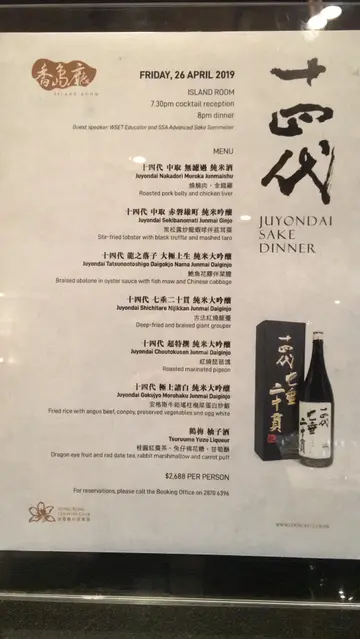 香島廳
ISLAND ROOM
FRIDAY, 26 APRIL 2019
ISLAND ROOM
7.30pm cocktail reception
8pm dinner
Guest speaker: WSET Educator and SSA Advanced Sake Sommelier
十四代
JUYONDAI
SAKE
DINNER
MENU
十四代 中取 無濾過 純米酒
Juyondai Nakadori Muroka Junmaishu
燒腩肉、金錢雞
Roasted pork belly and chicken liver
十四代 中取 赤磐雄町 純米吟釀
Juyondai Sekibanomati Junmai Ginjo
黑松露炒龍蝦球伴荔茸窩
Stir-fried lobster with black truffle and mashed taro
十四代 龍之落子 大極上生 純米大吟釀
Juyondai Tatsunootoshigo Daigokjo Nama Junmai Daiginjo
鮑魚花膠伴菜膽
Braised abalone in oyster sauce with fish maw and Chinese cabbage
十四代 七垂二十貫 純米大吟釀
Juyondai Shichitare Nijikkan Junmai Daiginjo
古法紅燒龍躉
Deep-fried and braised giant grouper
十四代 超特撰 純米大吟釀
Juyondai Choutokusen Junmai Daiginjo
紅燒琵琶鴿
Roasted marinated pigeon
十四代 極上諸白 純米大吟釀
Juyondai Gokujyo Morohaku Junmai Daiginjo
安格斯牛崧瑤柱欖菜蛋白炒飯
Fried rice with angus beef, conpoy, preserved vegetables and egg white
鶴梅 柚子酒
Tsuruume Yuzu Liqueur
桂圓紅棗茶、兔仔棉花糖、甘筍酥
Dragon eye fruit and red date tea, rabbit marshmallow and carrot puff
$2,688 PER PERSON
For reservations, please call the Booking Office on 2870 6396
十四代
七垂二十貫
十四代
七垂二十貫
HONG KONG
COUNTRY CLUB